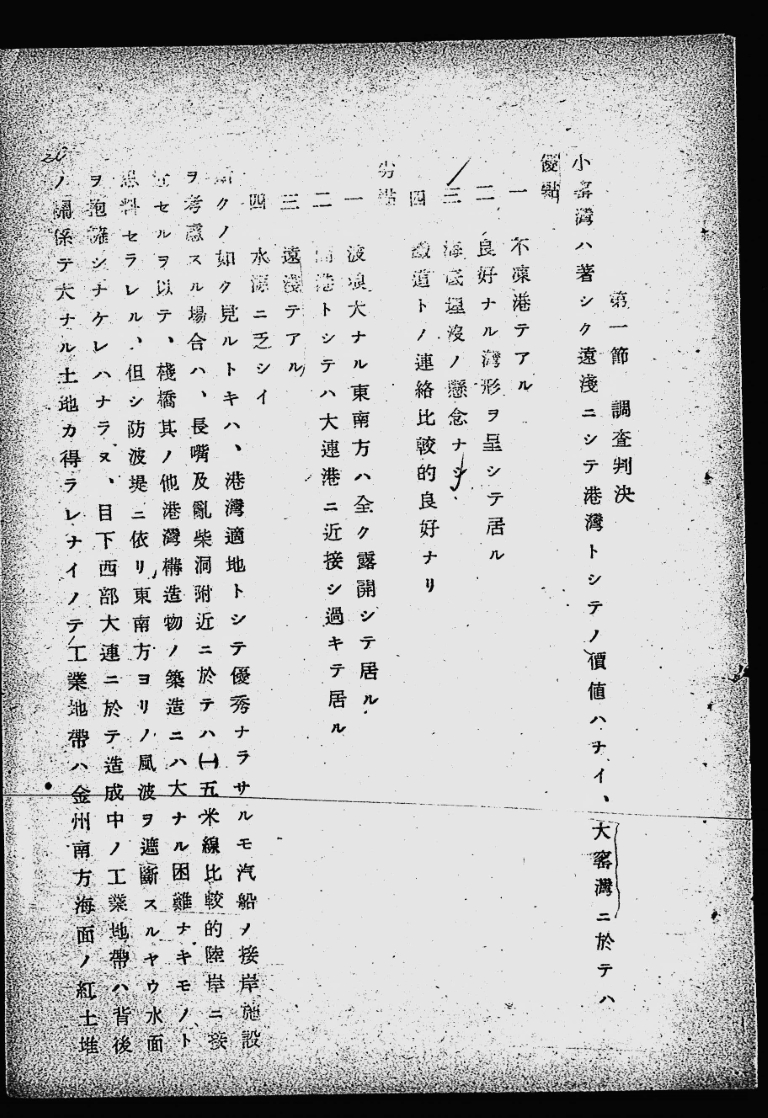 第一節　調査判決
小窰灣ハ著シク遠淺ニシテ港灣トシテノ價値ハナイ、大窰灣ニ於テハ
優點
一　不凍港テアル
二　良好ナル灣形ヲ呈シテ居ル
三　海底埋沒ノ懸念ナシ
四　鐵道トノ連絡比較的良好ナリ
劣
一　波浪大ナル東南方ハ全ク露開シテ居ル
二　商港トシテハ大連港ニ近接シ過キテ居ル
三　遠淺テアル
四　水源ニ乏シイ
クノ如ク見ルトキハ、港灣適地トシテ優秀ナラサルモ汽船ノ接岸施設
ヲ考慮スル場合ハ、長嘴及亂柴洞附近ニ於テハ(一)五米線比較的陸岸ニ接
セルヲ以テ、棧橋其ノ他港灣構造物ノ築造ニハ大ナル困難ナキモノト
思料セラレル、但シ防波堤ニ依リ東南方ヨリノ風波ヲ遮斷スルヤウ水面
ヲ抱擁シナケレハナラヌ、目下西部大連ニ於テ造成中ノ工業地帶ハ背後
ノ關係テ大ナル土地カ得ラレナイノテ工業地帶ハ金州南方海面ノ紅土堆